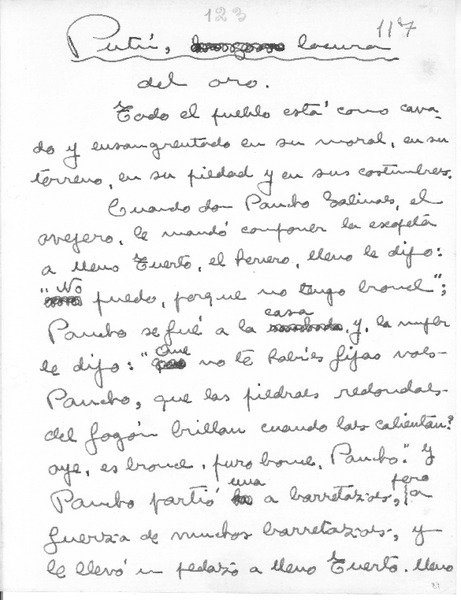 123
117
Putú, locura
del oro.
Todo el pueblo está como cava-
do y ensangrentado en su moral, en su
terreno, en su piedad y en sus costumbres.
Cuando don Pancho Salinas, el
ovejero, le mandó componer la escopeta
a Lleno Tuerto, el herrero, Lleno le dijo:
"No puedo, porque no tengo bronce";
Pancho se fué a la casa y, la mujer
le dijo: "Que no te habís fijao vos
Pancho, que las piedras redondas
del fogón brillan cuando las calientan?
oye, es bronce, puro bronce, Pancho." Y
Pancho partió una a barretazos, pero a
fuerza de muchos barretazos, y
le llevó un pedazo a Lleno Tuerto. Lleno